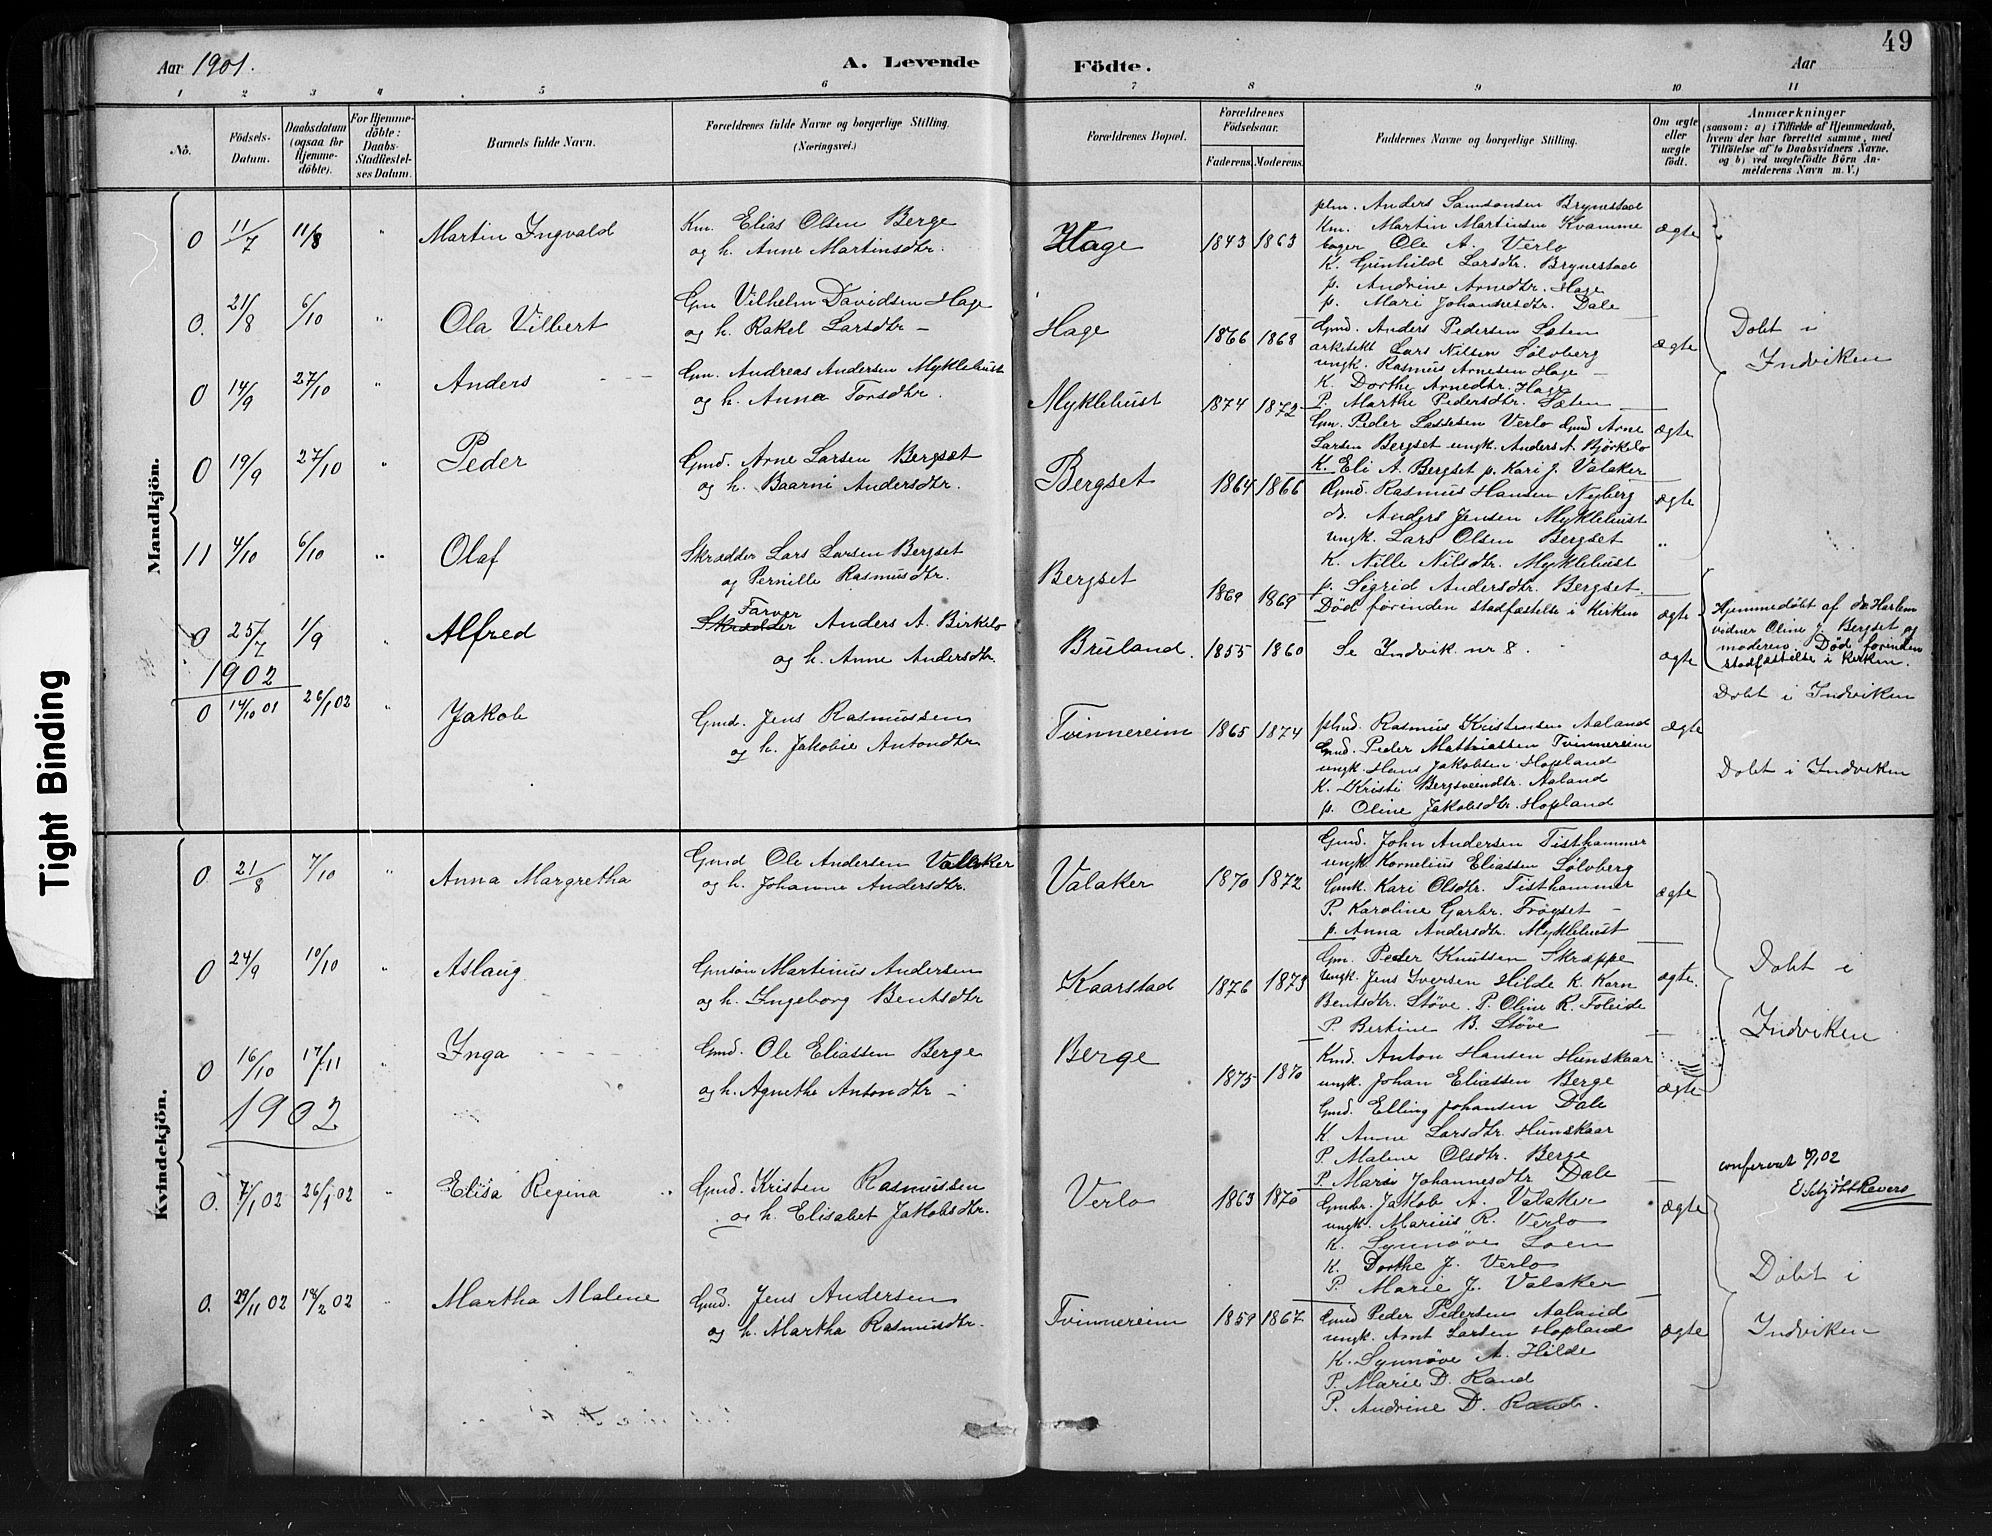 Aar 1901.
A. Levende
Födte.
Aar
49
1
2
3
4
5
6
7
8
9
10
11
No.
Födsels-
Datum.
Daabsdatum
(ogsaa for
Hjemme-
döbte).
For Hjemme-
döbte:
Daabs-
Stadfæstel-
ses Datum.
Barnets fulde Navn.
Forældrenes fulde Navne og borgerlige Stilling.
(Næringsvei.)
Forældrenes Bopæl.
Forældrenes
Födselsaar.
Faderens. Moderens.
Faddernes Navne og borgerlige Stilling.
Om ægte
eller
uægte
födt.
Anmærkninger
(saasom: a) i Tilfælde af Hjemmedaab,
hvem der har forrettet samme, med
Tilföielse af to Daabsvidners Navne.
og b) ved uægtefödte Börn An-
melderens Navn m. V.)
Mandkjön.
0 11/7 11/8 " Martin Ingvald
Km. Elias Olsen Berge
og h. Anne Martinsdtr.
Hage 1843 1863
plm. Anders Samsonsen Brynestad
Km. Martin Martinsen Kvamme
bager Ole A. Verlo
K. Gunhild Larsdtr. Brynestad
p. Andrine Arnedtr. Hage
p. Mari Johannesdtr. Dale
ægte
0. 21/8 6/10 " Ola Vilbert
Gm Vilhelm Davidsen Hage
og h. Rakel Larsdtr –
Hage 1866 1868
Gmd. Anders Pedersen Sæten
arketekt Lars Nilsen Sølvberg
ungk. Rasmus Arnesen Hage –
K. Dorthe Arnedtr. Hage
P. Marthe Pedersdtr. Sæten
ægte
Döbt i
Indviken
0 14/9 27/10 " Anders
Gm. Andreas Andersen Myklebust
og h. Anna Torsdtr.
Myklebust 1874 1872
Gm. Peder Lassesen Verlo Gmd Arne
Larsen Bergset ungk. Anders A. Bjørkelo
K. Eli A. Bergset p. Kari J. Valaker
ægte
0 19/9 27/10 " Peder
Gmd. Arne Larsen Bergset
og h. Baarni Andersdtr.
Bergset 1864 1866
Gmd. Rasmus Hansen Nyberg
do. Anders Jensen Myklebust
ungk. Lars Olsen Bergset
K. Nille Nilsdtr. Myklebust
p. Sigrid Andersdtr. Bergset.
ægte
"
11 4/10 6/10 " Olaf
Skrædder Lars Larsen Bergset
og Pernille Rasmusdtr.
Bergset 1869 1869
Død førinden stadfæstelse i Kirken
ægte
Hjemmedøbt af
vidner Oline J. Bergset og
moderen. Død førinden
stadfæstelse i Kirken.
0 25/7 1/9 " Alfred
Farver
Skrædder Anders A. Birkelo
og h. Anne Andersdtr.
Bruland. 1855 1860
Se Indvik nr 8.
ægte
Döbt i Indviken
1902
0 14/10 01 26/1 02 " Jakob
Gmd. Jens Rasmussen
og h. Jakobie Antondtr
Tvinnereim 1865 1874
Rasmus Kristensen Aaland
Gmd. Peder Mathiassen Tvinnereim
ungk. Hans Jakobsen Hopland
K. Kristi Bergsveindtr. Aaland
p. Oline Jakobsdtr. Hopland
ægte
Döbt i Indviken
Kvindekjön.
0. 21/8 7/10 " Anna Margretha
Gmd Ole Andersen Valaker
og h. Johanne Andersdtr.
Valaker 1870 1872
Gmd. John Andersen Tisthammer
ungk. Kornelius Eliassen Sølvberg
Gmk. Kari Olsdtr. Tisthammer
P. Karoline Garbr. Frøyset –
p. Anna Andersdtr. Myklebust
ægte
0 24/9 10/10 " Aslaug
Gmsøn Martinus Andersen
og h. Ingeborg Bentsdtr
Kaarstad 1876 1873
Gm. Peder Knutsen Skrøppe
ungk. Jens Iversen Hilde K. Karn
Bentsdtr. Støve. P. Oline R. Foleide
P. Bertine B. Støve
ægte.
Döbt i
Indviken
0 16/10 17/11 Inga
Gmd. Ole Eliassen Berge
og h. Agnethe Antondtr –
Berge 1875 1870
Kmd. Anton Hansen Hunskaar
ungk. Johan Eliassen Berge
Gmd. Elling Johansen Dale
K. Anne Larsdtr. Hunskaar
P. Malene Olsdtr. Berge
P. Mari Johannesdtr Dale
ægte
1902
conferert 02
0. 7/1 02 26/1 02 " Elisa Regina "
Gmd. Kristen Rasmussen
og h. Elisabet Jakobsdtr.
Verlo 1863 1870
Gmbr. Jakob A. Valaker
ungk. Marius R. Verlo
K. Synnøve Loen
K. Dorthe J. Verlo
P. Marie J. Valaker
ægte
Döbt i
Indviken
0. 29/11 02 18/2 02 " Martha Malene
Gmd. Jens Andersen
og h. Martha Rasmusdtr.
Tvinnereim 1859 1867
Gmd Peder Pedersen Aaland
ungk. Arnt Larsen Hopland
K. Synnøve A. Hilde
P. Marie D. Rand
P. Andrine D. Rand.
ægte
Tight Binding